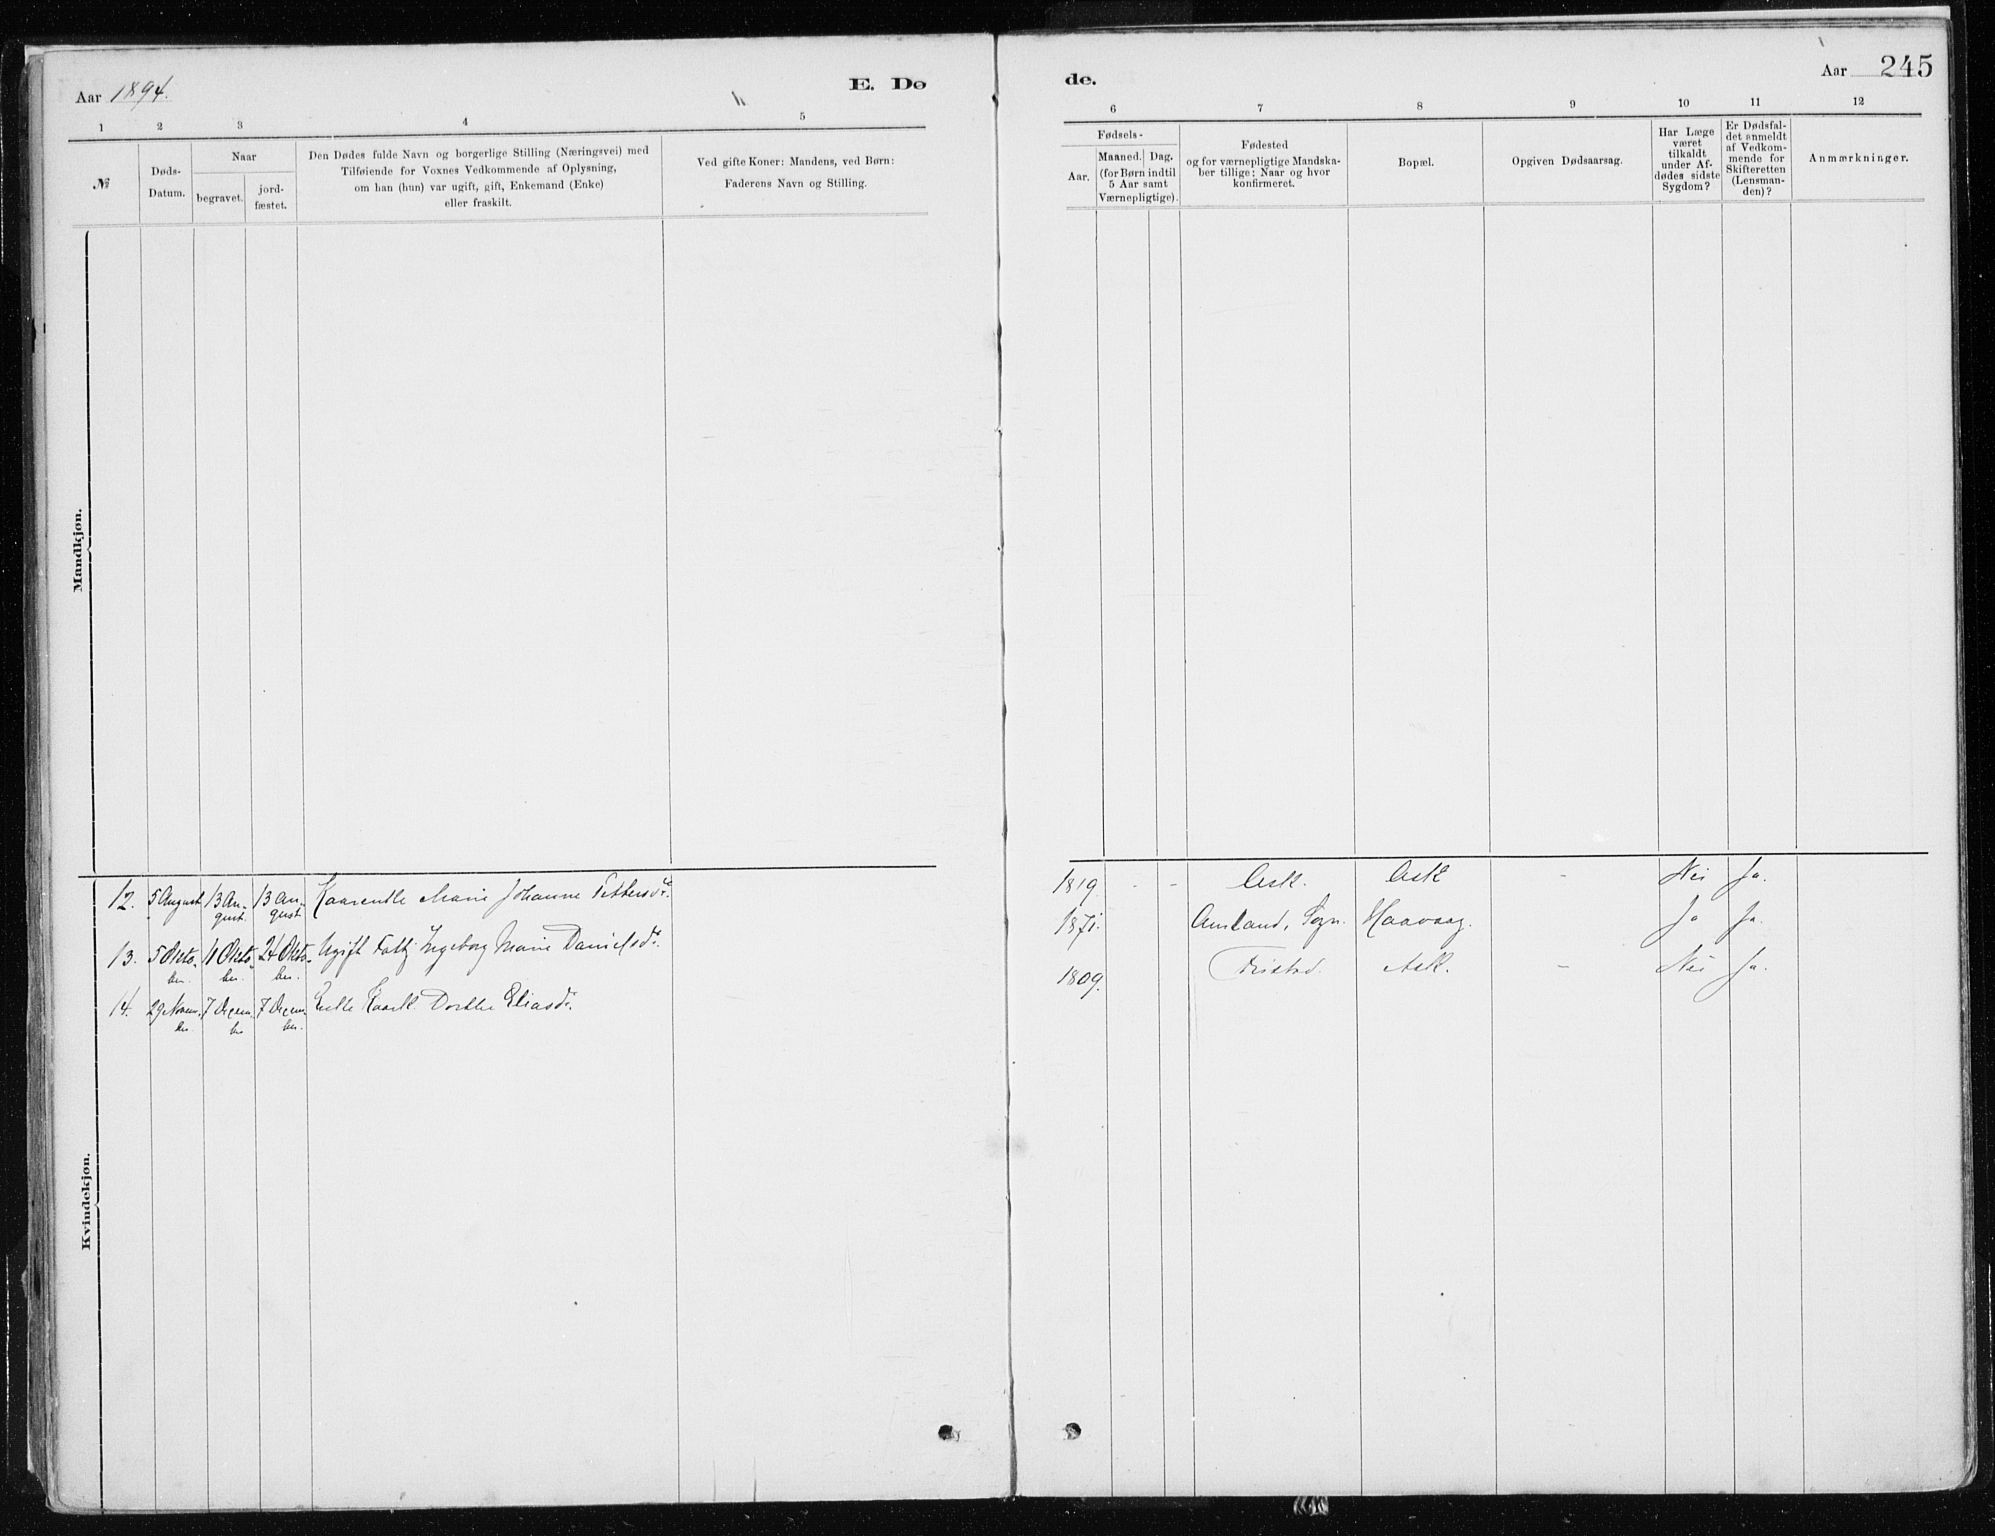 Aar 1894.
E. Dø
de.
Aar 245
1 2 3 4 5
6 7 8 9 10 11 12
№
Døds-
Datum.
Naar
begravet.
jord-
fæstet.
Den Dødes fulde Navn og borgerlige Stilling (Næringsvei) med
Tilføiende for Voxnes Vedkommende af Oplysning,
om han (hun) var ugift, gift, Enkemand (Enke)
eller fraskilt.
Ved gifte Koner: Mandens, ved Børn:
Faderens Navn og Stilling.
Fødsels-
Aar.
Maaned. Dag.
(for Børn indtil
5 Aar samt
Værnepligtige).
Fødested
og for værnepligtige Mandska-
ber tillige: Naar og hvor
konfirmeret.
Bopæl.
Opgiven Dødsaarsag.
Har Læge
været
tilkaldt
under Af-
dødes sidste
Sygdom?
Er Dødsfal-
det anmeldt
af Vedkom-
mende for
Skifteretten
(Lensman-
den)?
Anmærkninger.
Mandkjøn.
Kvindekjøn.
12. 5 August 13 Au- 13 Au- Kaarenke Marie Johanne Pettersdr.
gust. gust.
1819. - - Ask. Ask - Nei Ja.
13. 5 Okto- 11 Okto- 24 Okto- Ugift Ingeborg Marie Danielsdr.
ber. ber. ber.
1871. Amland, Sogn. Haavaag. Ja Ja.
14. 29 Novem- 7 Decem- 7 Decem- Enke Kaark. Dorthe Eliasdr.
ber. ber ber.
1809. Ask. - Nei Ja.